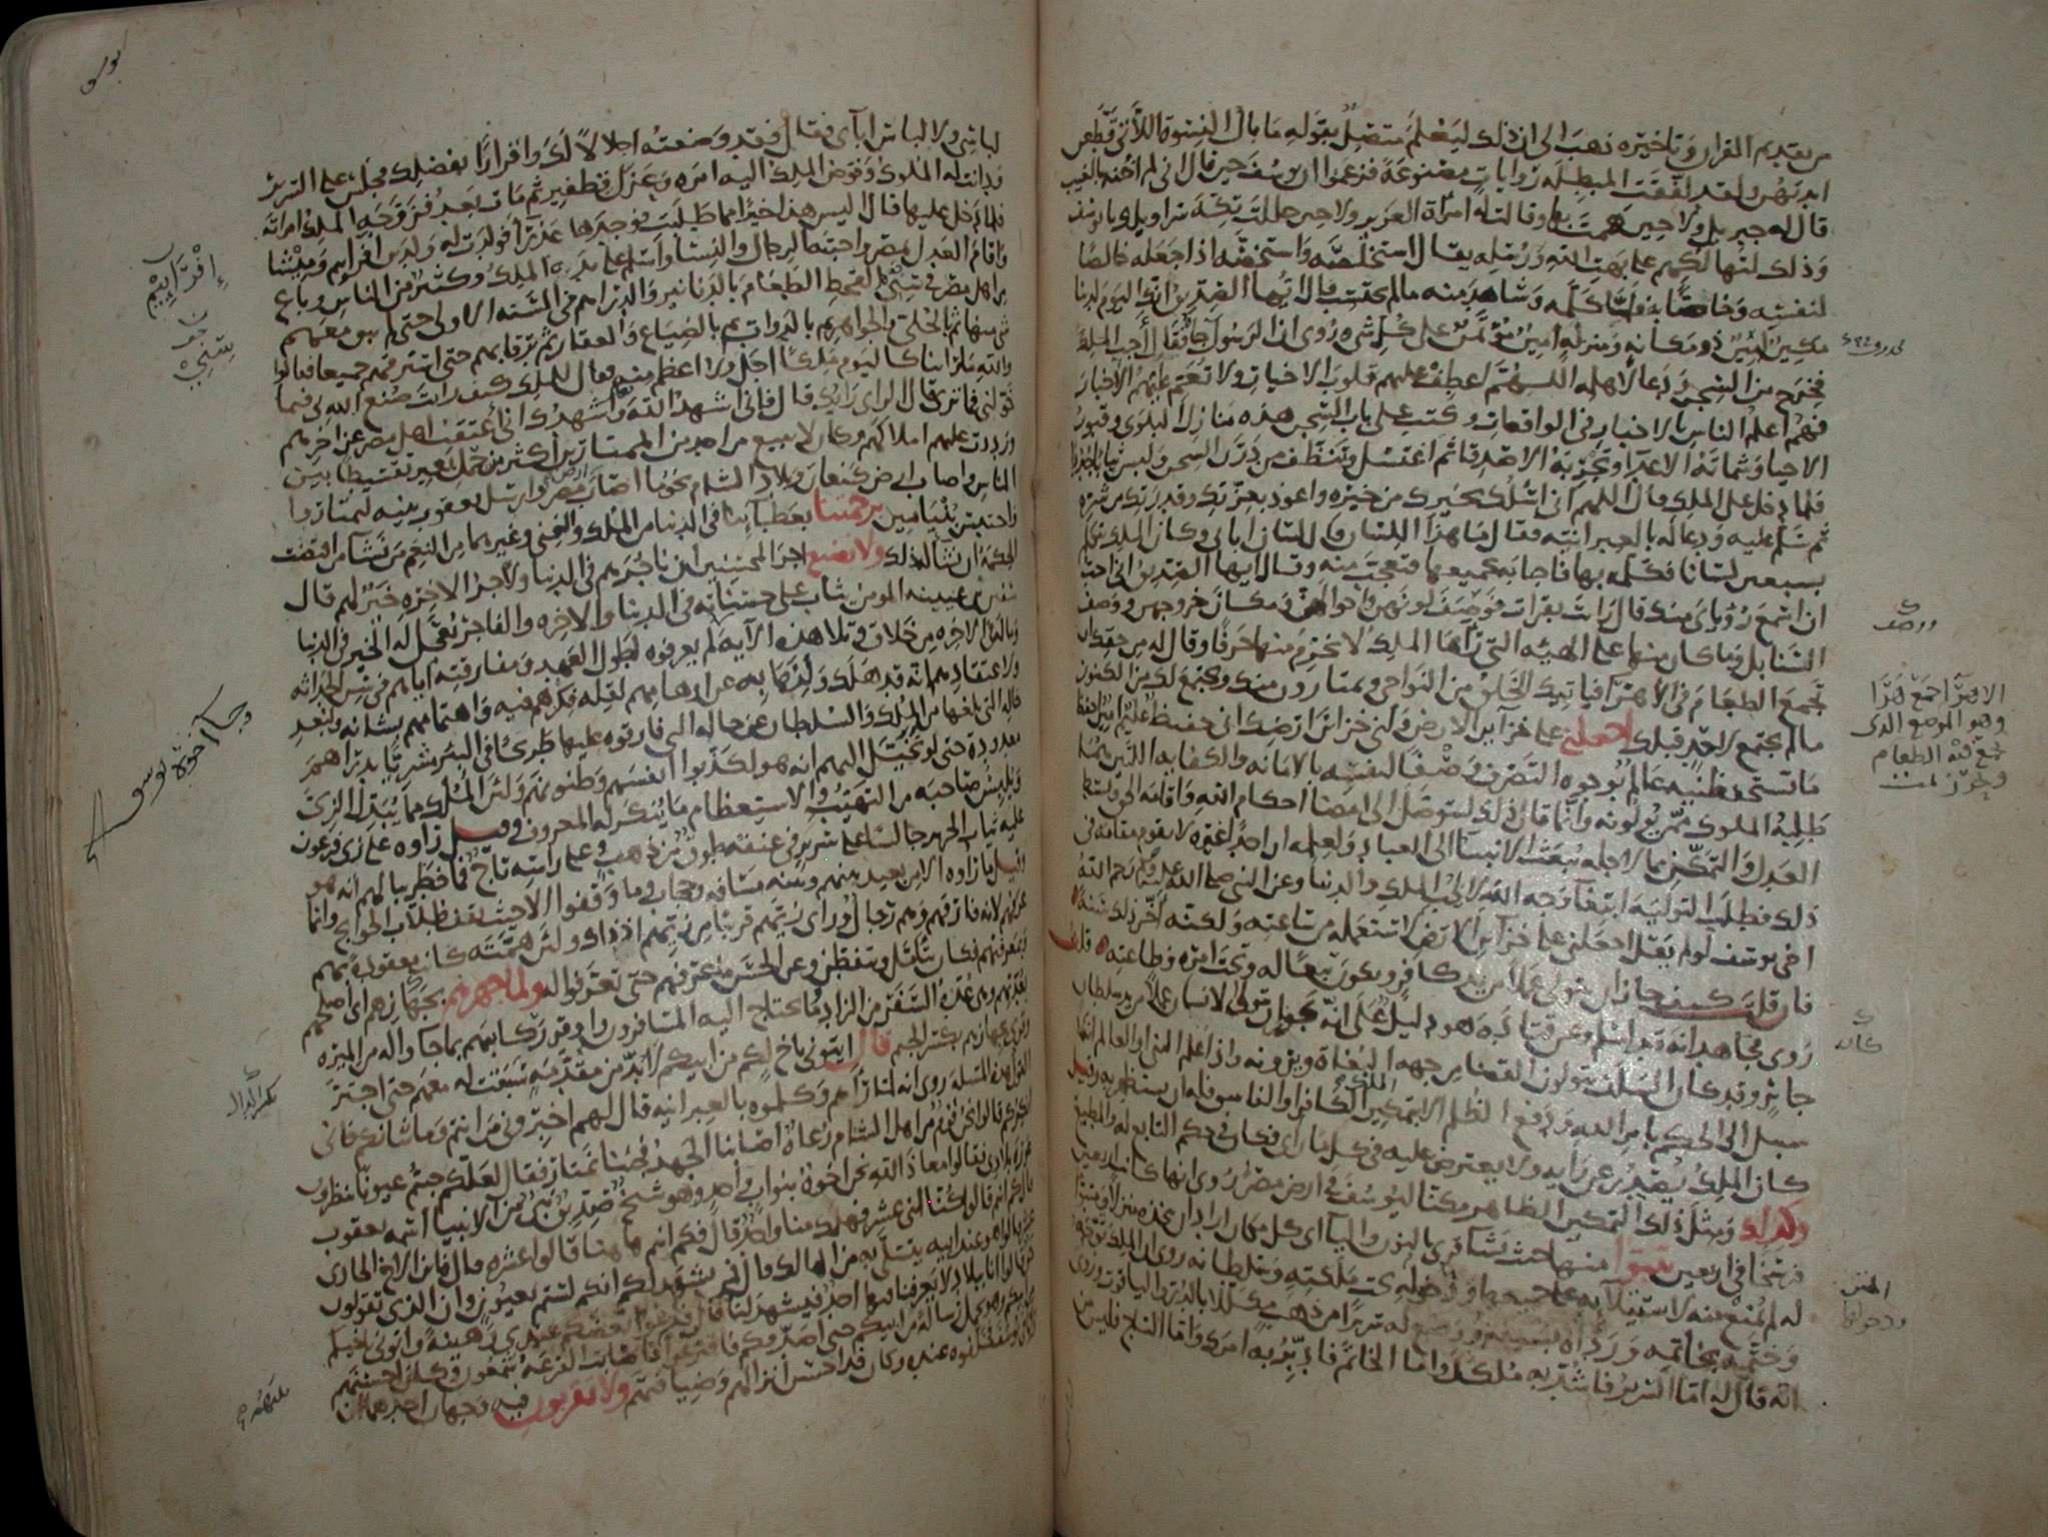 من تقديم القرآن وتأخيره ذهب الى ان ذلك ليعلم متصل بقوله ما بال النسوة اللاتي قطعن
ايديهن ولقد لفقت المبطلة روايات مصنوعة فزعموا ان يوسف حين قال اني لم اخنه بالغيب
قال له جبريل ولا حين هممت بها وقالت له امرأة العزيز ولا حين حللت تكة سراويلك يا يوسف
وذلك لتهالكهم على بهت الله ورسله يقال استخلصه واستخصه اذا جعله خالصا
لنفسه وخاصا به فلما كلمه وشاهد منه مالم يحتسب قال ايها الصديق انك اليوم لدينا
مكين امين ذو مكانة ومنزلة امين مؤتمن على كل شيء روي ان الرسول جاءه فقال أجب الملك
فخرج من السجن ودعا لاهله اللهم اعطف عليهم قلوب الاخيار ولا تعم عليهم الاخبار
فهم اعلم الناس بالاخبار في الواقعات وكتب على باب السجن هذه منازل البلوى وقبور
الاحيا وشماتة الاعدا وتجربة الاصدقا ثم اغتسل وتنظف من درن السجن ولبس ثيابا جددا
فلما دخل على الملك قال اللهم اني اسئلك بخيرك من خيره واعوذ بعزتك وقدرتك من شره
ثم سلم عليه ودعا له بالعبرانية فقال ما هذا اللسان قال لسان ابائي وكان الملك يتكلم
بسبعين لسانا فكلمه بها فاجابه بجميعها فتعجب منه وقال ايها الصديق اني احب
ان اسمع رؤياي منك قال رأيت بقرات فوصف لونهن واحوالهن ومكان خروجهن ووصف
السنابل وما كان منها على الهيئة التي رآها الملك لا يخرم منها حرفا وقال له من حقك ان
تجمع الطعام في الأهرا فياتيك الخلق من النواحي ويمتارون منك ويجتمع لك من الكنوز
مالم يجتمع لاحد قبلك اجعلني على خزاين الارض ولني خزاين ارضك اني حفيظ عليم امين احفظ
ما تستحفظنيه عالم بوجوه التصرف وصفا لنفسه بالامانة والكفاية اللتين هما
طلبة الملوك ممن يولونه وانما قال ذلك ليتوصل الى امضا احكام الله واقامة الحق وبسط
العدل والتمكن مما لاجله تبعث الانبيا الى العباد ولعلمه ان احدا غيره لا يقوم مقامه في
ذلك فطلب التولية ابتغا وجه الله لا لحب الملك والدنيا وعن النبي صلى الله عليه وسلم رحم الله
اخي يوسف لو لم يقل اجعلني على خزاين الارض لاستعمله من ساعته ولكنه أخر ذلك سنة
فان قلت كيف جاز ان يتولى عملا من يد كافر ويكون تبعا له وتحت امره وطاعته قلت
روى مجاهد انه قد اسلم وعن قتادة هو دليل على انه يجوز ان يتولى الانسان عملا من يد سلطان
جاير وقد كان السلف يتولون القضا من جهة البغاة ويرونه واذا علم النبي او العالم انه لا
سبيل الى الحكم بامر الله ودفع الظلم الا بتمكين الملك الكافر او الفاسق فله ان يستظهر به وقيل
كان الملك يصدر عن رايه ولا يعترض عليه في كل ما راى فكان في حكم التابع له والمطيع
وكذلك ومثل ذلك التمكين الظاهر مكنا ليوسف في ارض مصر روي انها كانت اربعين
فرسخا في اربعين يتبوا منها حيث نشا قرئ بالنون واليا اي كل مكان اراد ان يتخذه منزلا ومتبوأ
له لم يمنع منه لاستيلايه على جميعها ودخولها تحت ملكته وسلطانه روي ان الملك توجه
وختمه بخاتمه ورداه بسيفه ووضع له سريرا من ذهب مكللا بالدر والياقوت وروي
انه قال له اما السرير فاشد به ملكك واما الخاتم فادبر به امرك واما التاج فليس من
ووصف
الاهرا جمع هرا
وهو الموضع الذى
يجمع فيه الطعام
كان
ودخولها
لباسي ولا لباس آبائي فقال فقد وضعته اجلالا لك واقرارا بفضلك فجلس على السرير
ودانت له الملوك وفوض الملك اليه امره وعزل قطفير ثم مات بعد فزوجه الملك امرأته
فلما دخل عليها قال اليس هذا خيرا مما طلبت فوجدها عذرا فولدت له ولدين افراييم وميشا
واقام العدل بمصر واحبته الرجال والنسا واسلم على يديه الملك وكثير من الناس وباع
من اهل مصر في سني القحط الطعام بالدنانير والدراهم في السنة الاولى حتى لم يبق معهم
شي منها ثم بالحلي والجواهر ثم بالدواب ثم بالضياع والعقار ثم برقابهم حتى استرقهم جميعا فقالوا
والله ما راينا كاليوم ملكا اجل ولا اعظم منه فقال للملك كيف رايت صنع الله بي فيما
خولني فما ترى قال الراي رايك قال فاني اشهد الله واشهدك اني اعتقت اهل مصر عن اخرهم
ورددت عليهم املاكهم وكان لا يبيع من احد من الممتارين اكثر من حمل بعير تقسيطا بين
الناس واصاب ارض كنعان وبلاد الشام نحو ما اصاب مصر وارسل يعقوب بنيه ليمتاروا
واحتبس بنيامين برحمتنا بعطائنا في الدنيا من الملك والغنى وغيرهما من النعم من نشا من اقتضت
الحكمة ان نشا له ذلك ولا نضيع اجر المحسنين ان ناجرهم في الدنيا ولاجر الاخرة خير لهم قال
سفين بن عيينة المومن يثاب على حسناته في الدنيا والاخرة والفاجر يعجل له الخير في الدنيا
وما له في الاخرة من خلاق وتلا هذه الاية لم يعرفوه لطول العهد ومفارقته اياهم في سن الحداثة
ولاعتقادهم انه قد هلك ولذهابه عن اوهامهم لقلة فكرهم فيه واهتمامهم بشانه ولبعد
حاله التي بلغها من الملك والسلطان عن حاله التي فارقوه عليها طريحا في البير مشريا بدراهم
معدودة حتى لو تخيل اليهم انه هو لكذبوا انفسهم وظنونهم ولان الملك مما يبدل الزي
ويلبس صاحبه من التهيب والاستعظام ما ينكر له المعروف وقيل راوه على زي فرعون
عليه ثياب الحرير جالسا على سرير في عنقه طوق من ذهب وعلى راسه تاج فما خطر ببالهم انه هو
وقيل ما راوه الا من بعيد بينهم وبينه مسافة وحجاب وما وقفوا الا حيث يقف طلاب الحوائج وانما
عرفهم لانه فارقهم وهم رجال وراى زيهم قريبا من زيهم اذ ذاك ولان همته كانت معقودة بهم
وبمعرفتهم فكان يتامل ويتفطن وعن الحسن ما عرفهم حتى تعرفوا له ولما جهزهم بجهازهم اي اصلحهم
بعدتهم وهي عدة السفر من الزاد وما يحتاج اليه المسافرون واوقر ركائبهم بما جاوا له من الميرة
وقرئ بجهازهم بكسر الجيم قال ايتوني باخ لكم من ابيكم لا بد من مقدمة سبقت له معهم حتى اجتر
القول هذه المسئلة روي انه لما راهم وكلموه بالعبرانية قال لهم اخبروني من انتم وما شانكم فاني
انكركم قالوا نحن قوم من اهل الشام رعاة اصابنا الجهد فجئنا نمتار فقال لعلكم جئتم عيونا تنظرون
عورة بلادي فقالوا معاذ الله نحن اخوة بنو اب واحد وهو شيخ صديق نبي من الانبيا اسمه يعقوب
قال كم انتم قالوا كنا اثني عشر فهلك منا واحد قال فكم انتم هاهنا قالوا عشرة قال فاين الاخ الحادي
عشر قالوا هو عند ابيه يتسلى به من الهالك قال فمن يشهد لكم انكم لستم بعيون وان الذي تقولون
حق قالوا انا ببلاد لا يعرفنا فيها احد فيشهد لنا قال فدعوا بعضكم عندي رهينة واتوني باخيكم
من ابيكم وهو يحمل رسالة من ابيكم حتى اصدقكم فاقترعوا فاصابت القرعة شمعون وكان احسنهم
رايا في يوسف فخلفوه عنده وكان قد احسن انزالهم وضيافتهم ولا تقربون فيه وجهان احدهما ان
إفراييم
وجاء اخوة يوسف
بكسر الدال